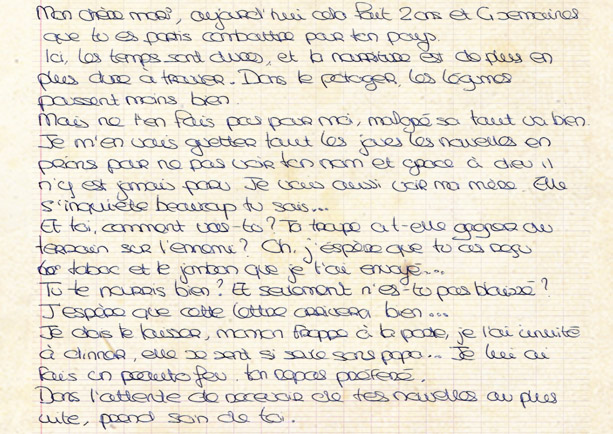 Mon chère mari, aujourd'hui cela fait 2 ans et 6 semaines
que tu es partis combattre pour ton pays.
Ici, les temps sont dures, et la nourriture est de plus en
plus dure à trouver. Dans le potager, les légumes
poussent moins bien.
Mais ne t'en fais pas pour moi, malgré sa tout va bien.
Je m'en vais guetter tout les jours les nouvelles en
priant pour ne pas voir ton nom et grace à dieu il
n'y est jamais paru. Je vais aussi voir ma mère. Elle
s'inquiète beaucoup tu sais...
Et toi, comment vas-tu? Ta troupe a t-elle gagner du
terrain sur l'ennemi? Oh, j'espère que tu as reçu
le tabac et le jambon que je t'ai envoyé...
Tu te nourris bien? Et seulement n'es-tu pas blessé?
J'espère que cette lettre arrivera bien...
Je dois te laisser, maman frappe à la porte, je l'ai invité
à dinner, elle se sent si seule sans papa... Je lui ai
fais un feu. ton repas préféré.
Dans l'attente de recevoir de tes nouvelles au plus
vite, prend soin de toi.